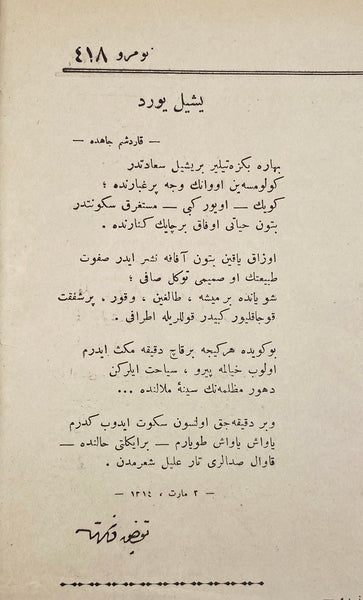 نومرو ٤١٨
یشیل یورد
— قاردشم جاهده —
بهاره بکزه تیلیر بریشیل سعادتدر
کولومسه‌ین اووانك وجه پرغبارنده ؛
کویك — اویور کبی — مستغرق سکونتدر
بتون حیاتی اوفاق برچایك کنارنده .
اوزاق یاقین بتون آفاقه نشر ایدر صفوت
طبیعتك او صمیمی توکل صافی ؛
شو یانده بر میشه ، طالغین ، وقور . پرشفقت
قوجاقلیور کبیدر قوللریله اطرافی .
بوکویده هرکیجه برقاچ دقیقه مکث ایدرم
اولوب خیالمه پیرو ، سیاحت ایلرکن
دهور مظلمه‌نك سینهٔ ملالنده ...
وبر دقیقه‌جق اولسون سکوت ایدوب کدرم
یاواش یاواش طویارم — برایکلتی حالنده —
قاوال صدالری تار علیل شعرمدن .
— ٢ مارت ، ١٣١٤ —
توفیق فکرت